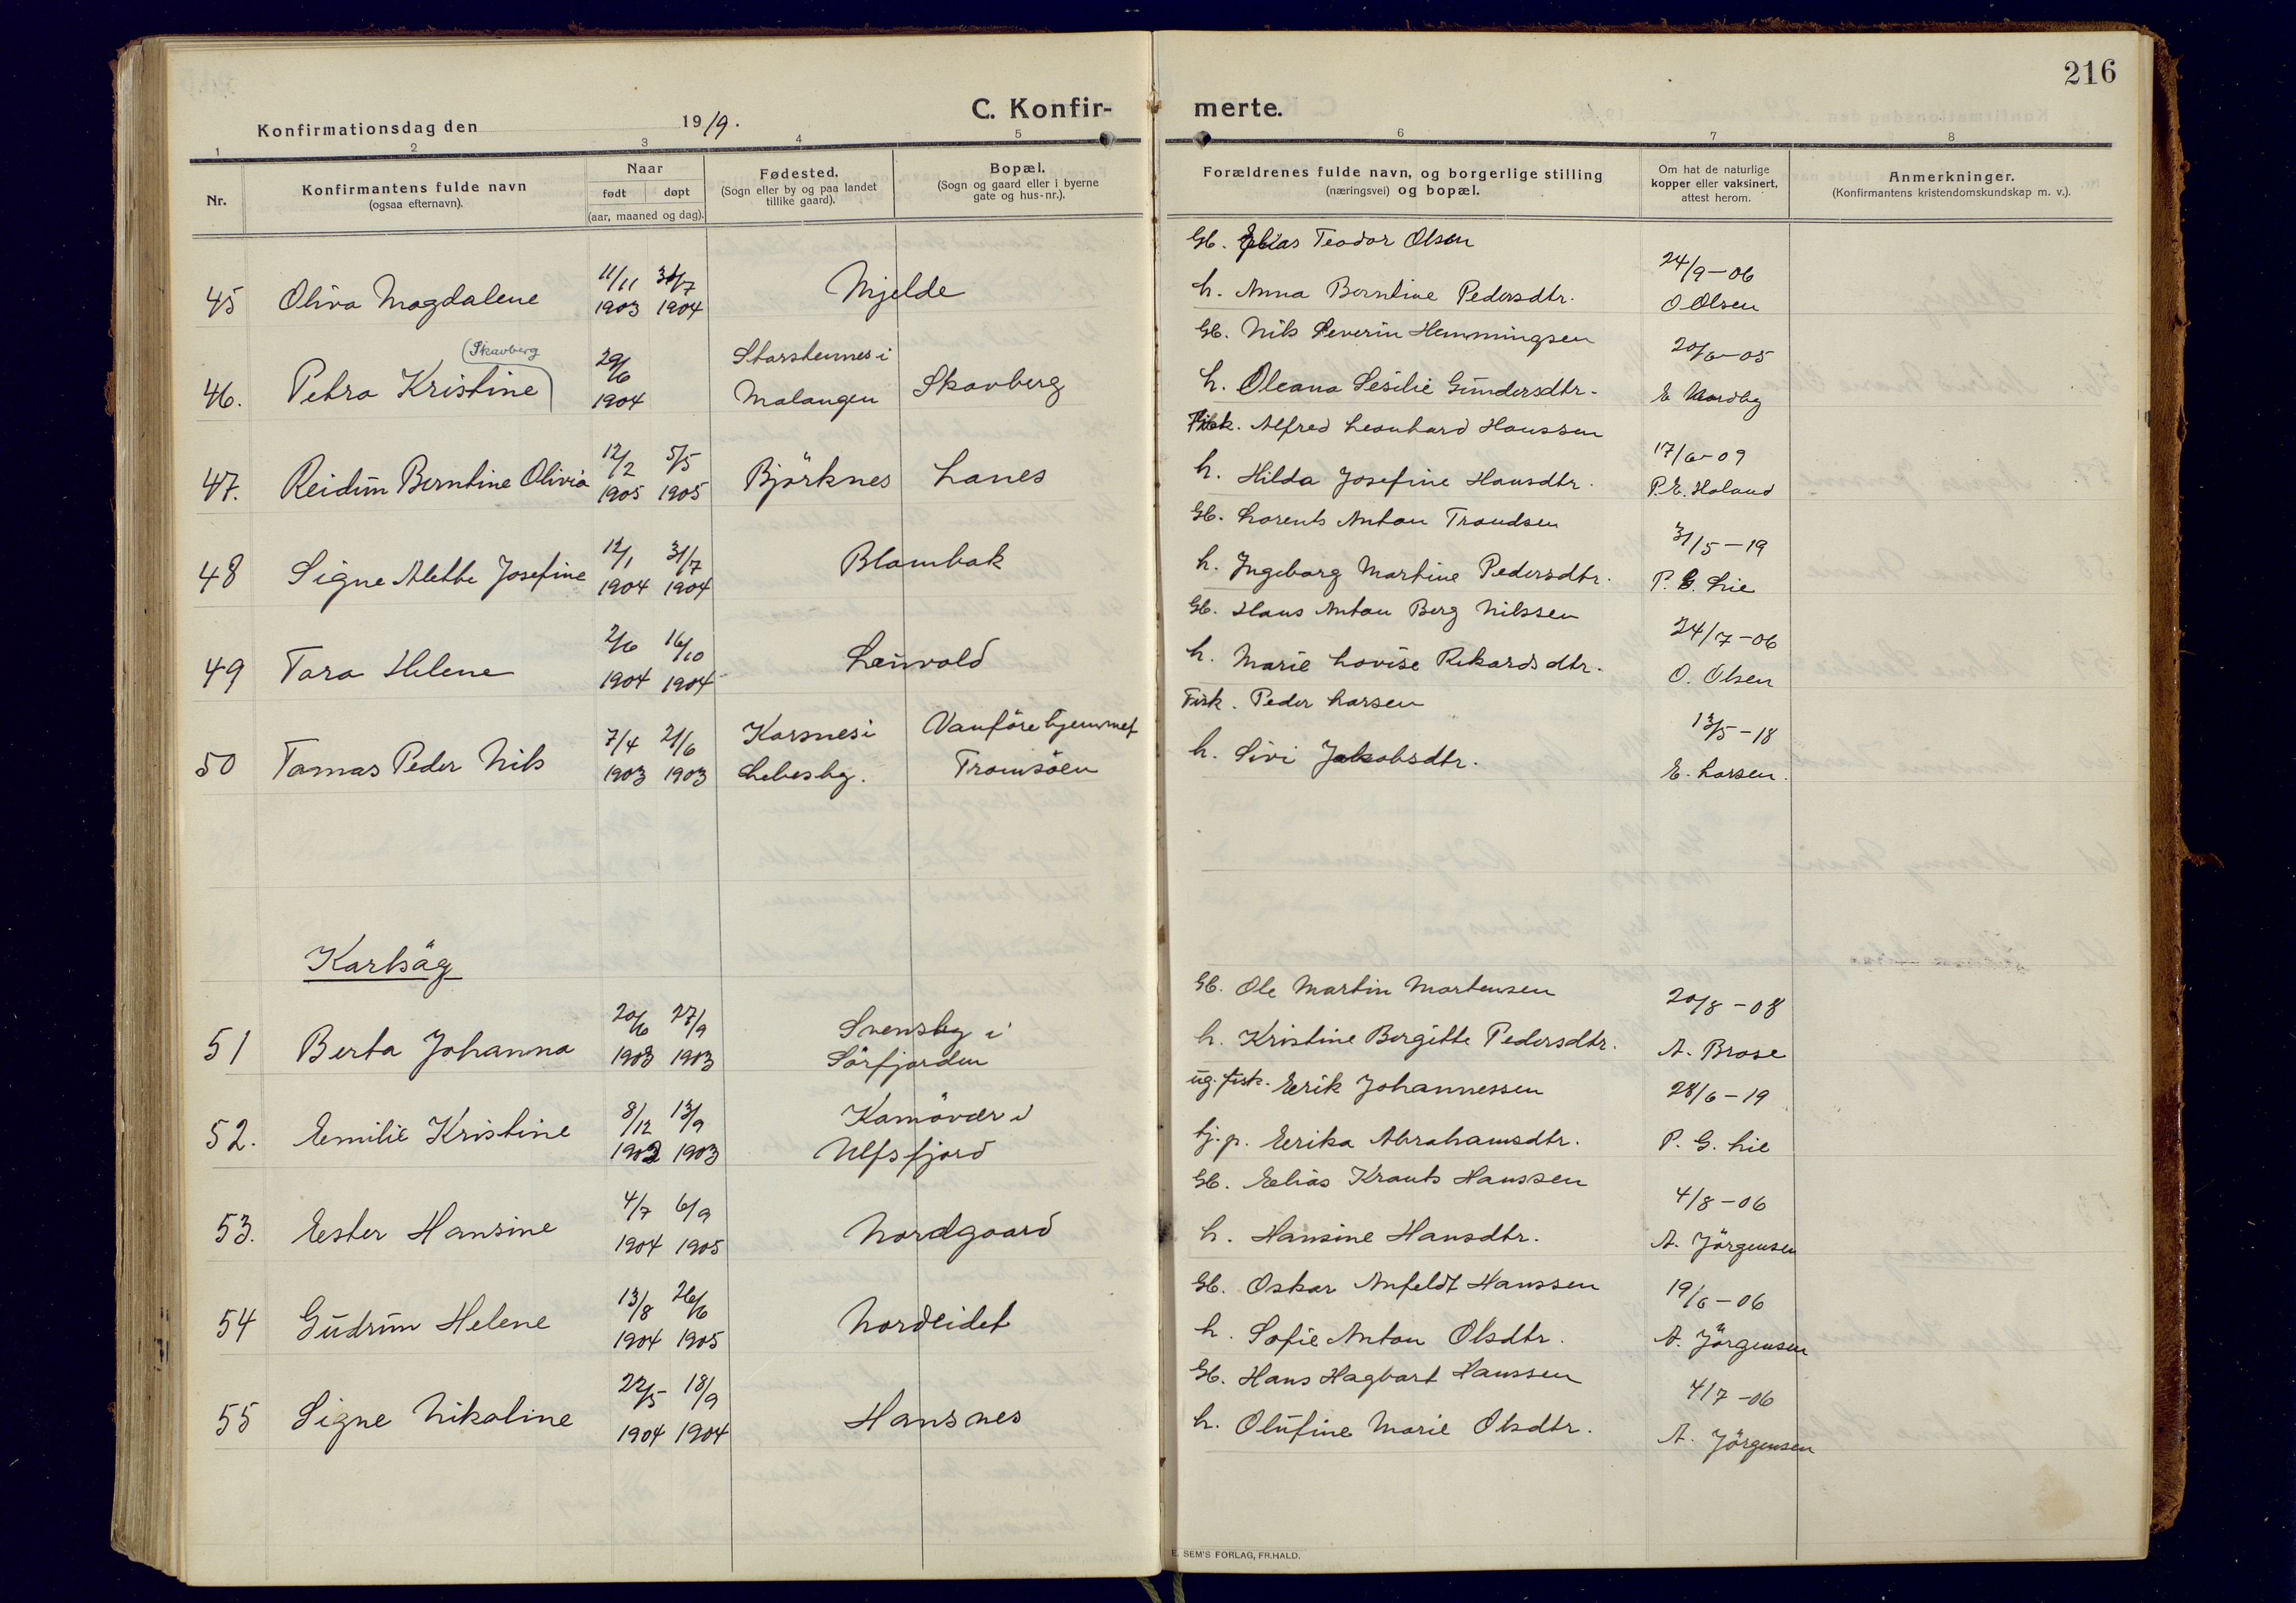 216
C. Konfir-
merte.
Konfirmationsdag den 1919.
1 2 3 4 5 6 7 8
Nr.
Konfirmantens fulde navn
(ogsaa efternavn).
Naar
født døpt
(aar, maaned og dag).
Fødested.
(Sogn eller by og paa landet
tillike gaard).
Bopæl.
(Sogn og gaard eller i byerne
gate og hus-nr.).
Forældrenes fulde navn, og borgerlige stilling
(næringsvei) og bopæl.
Om hat de naturlige
kopper eller vaksinert,
attest herom.
Anmerkninger.
(Konfirmantens kristendomskundskap m. v.).
Gb. Elias Teodor Olsen
11/11 31/7 24/9-06
45 Oliva Magdalene 1903 1904 Mjelde h. Anna Berntine Pedersdtr. O Olsen
Skavberg
29/6 Storstennes i Gb. Nils Severin Hemmingsen 20/6-05
46. Petra Kristine 1904 Malangen Skavberg h. Oleana Sesilie Gundersdtr. E Nordby
Fisk. Alfred Leonhard Hanssen
12/2 5/5 17/6-09
47. Reidun Berntine Olivia 1905 1905 Björknes Lanes h. Hilda Josefine Hansdtr. P.E. Holand
Gb. Lorents Anton Trondsen
12/1 31/7 31/5-19
48 Signe Alette Josefine 1904 1904 Blambak h. Ingeborg Martine Pedersdtr. P. G. Lie
Gb. Hans Anton Berg Nilssen
2/6 16/10 24/7-06
49 Tora Helene 1904 1904 Leinvold h. Marie Lovise Rikardsdtr. O. Olsen
Fisk. Peder Larsen
7/4 21/6 Karsnes i Vanförehjemmet 13/5-18
50 Tomas Peder Nils 1903 1903 Lebesby. Tromsöen h. Sivi Jakobsdtr. E. Larsen.
Karlsøg
Gb. Ole Martin Mortensen
20/6 27/9 Svensby i 20/8-08
51 Berta Johanna 1903 1903 Sörfjorden h. Kristine Bergitte Pedersdtr. A. Brose
ug. fisk. Eerik Johannessen
8/12 13/9 Kamövær i 28/6-19
52. Eemilie Kristine 1902 1903 Ulfsfjord tj.p. Eerika Abrahamsdtr. P. G. Lie
Gb. Eelias Krants Hanssen
4/7 6/9 4/8-06
53. Eester Hansine 1904 1905 Nordgaard h. Hansine Hansdtr. A. Jörgensen
Gb. Oskar Anfeldt Hanssen
13/8 26/6 19/6-06
54 Gudrun Helene 1904 1905 Nordeidet h. Sofie Anton Olsdtr. A. Jörgensen
Gb. Hans Hagbart Hanssen
22/5 18/9 4/7-06
55 Signe Nikoline 1904 1904 Hansnes h. Olufine Marie Olsdtr. A. Jörgensen
E. SEM'S FORLAG, FR.HALD.